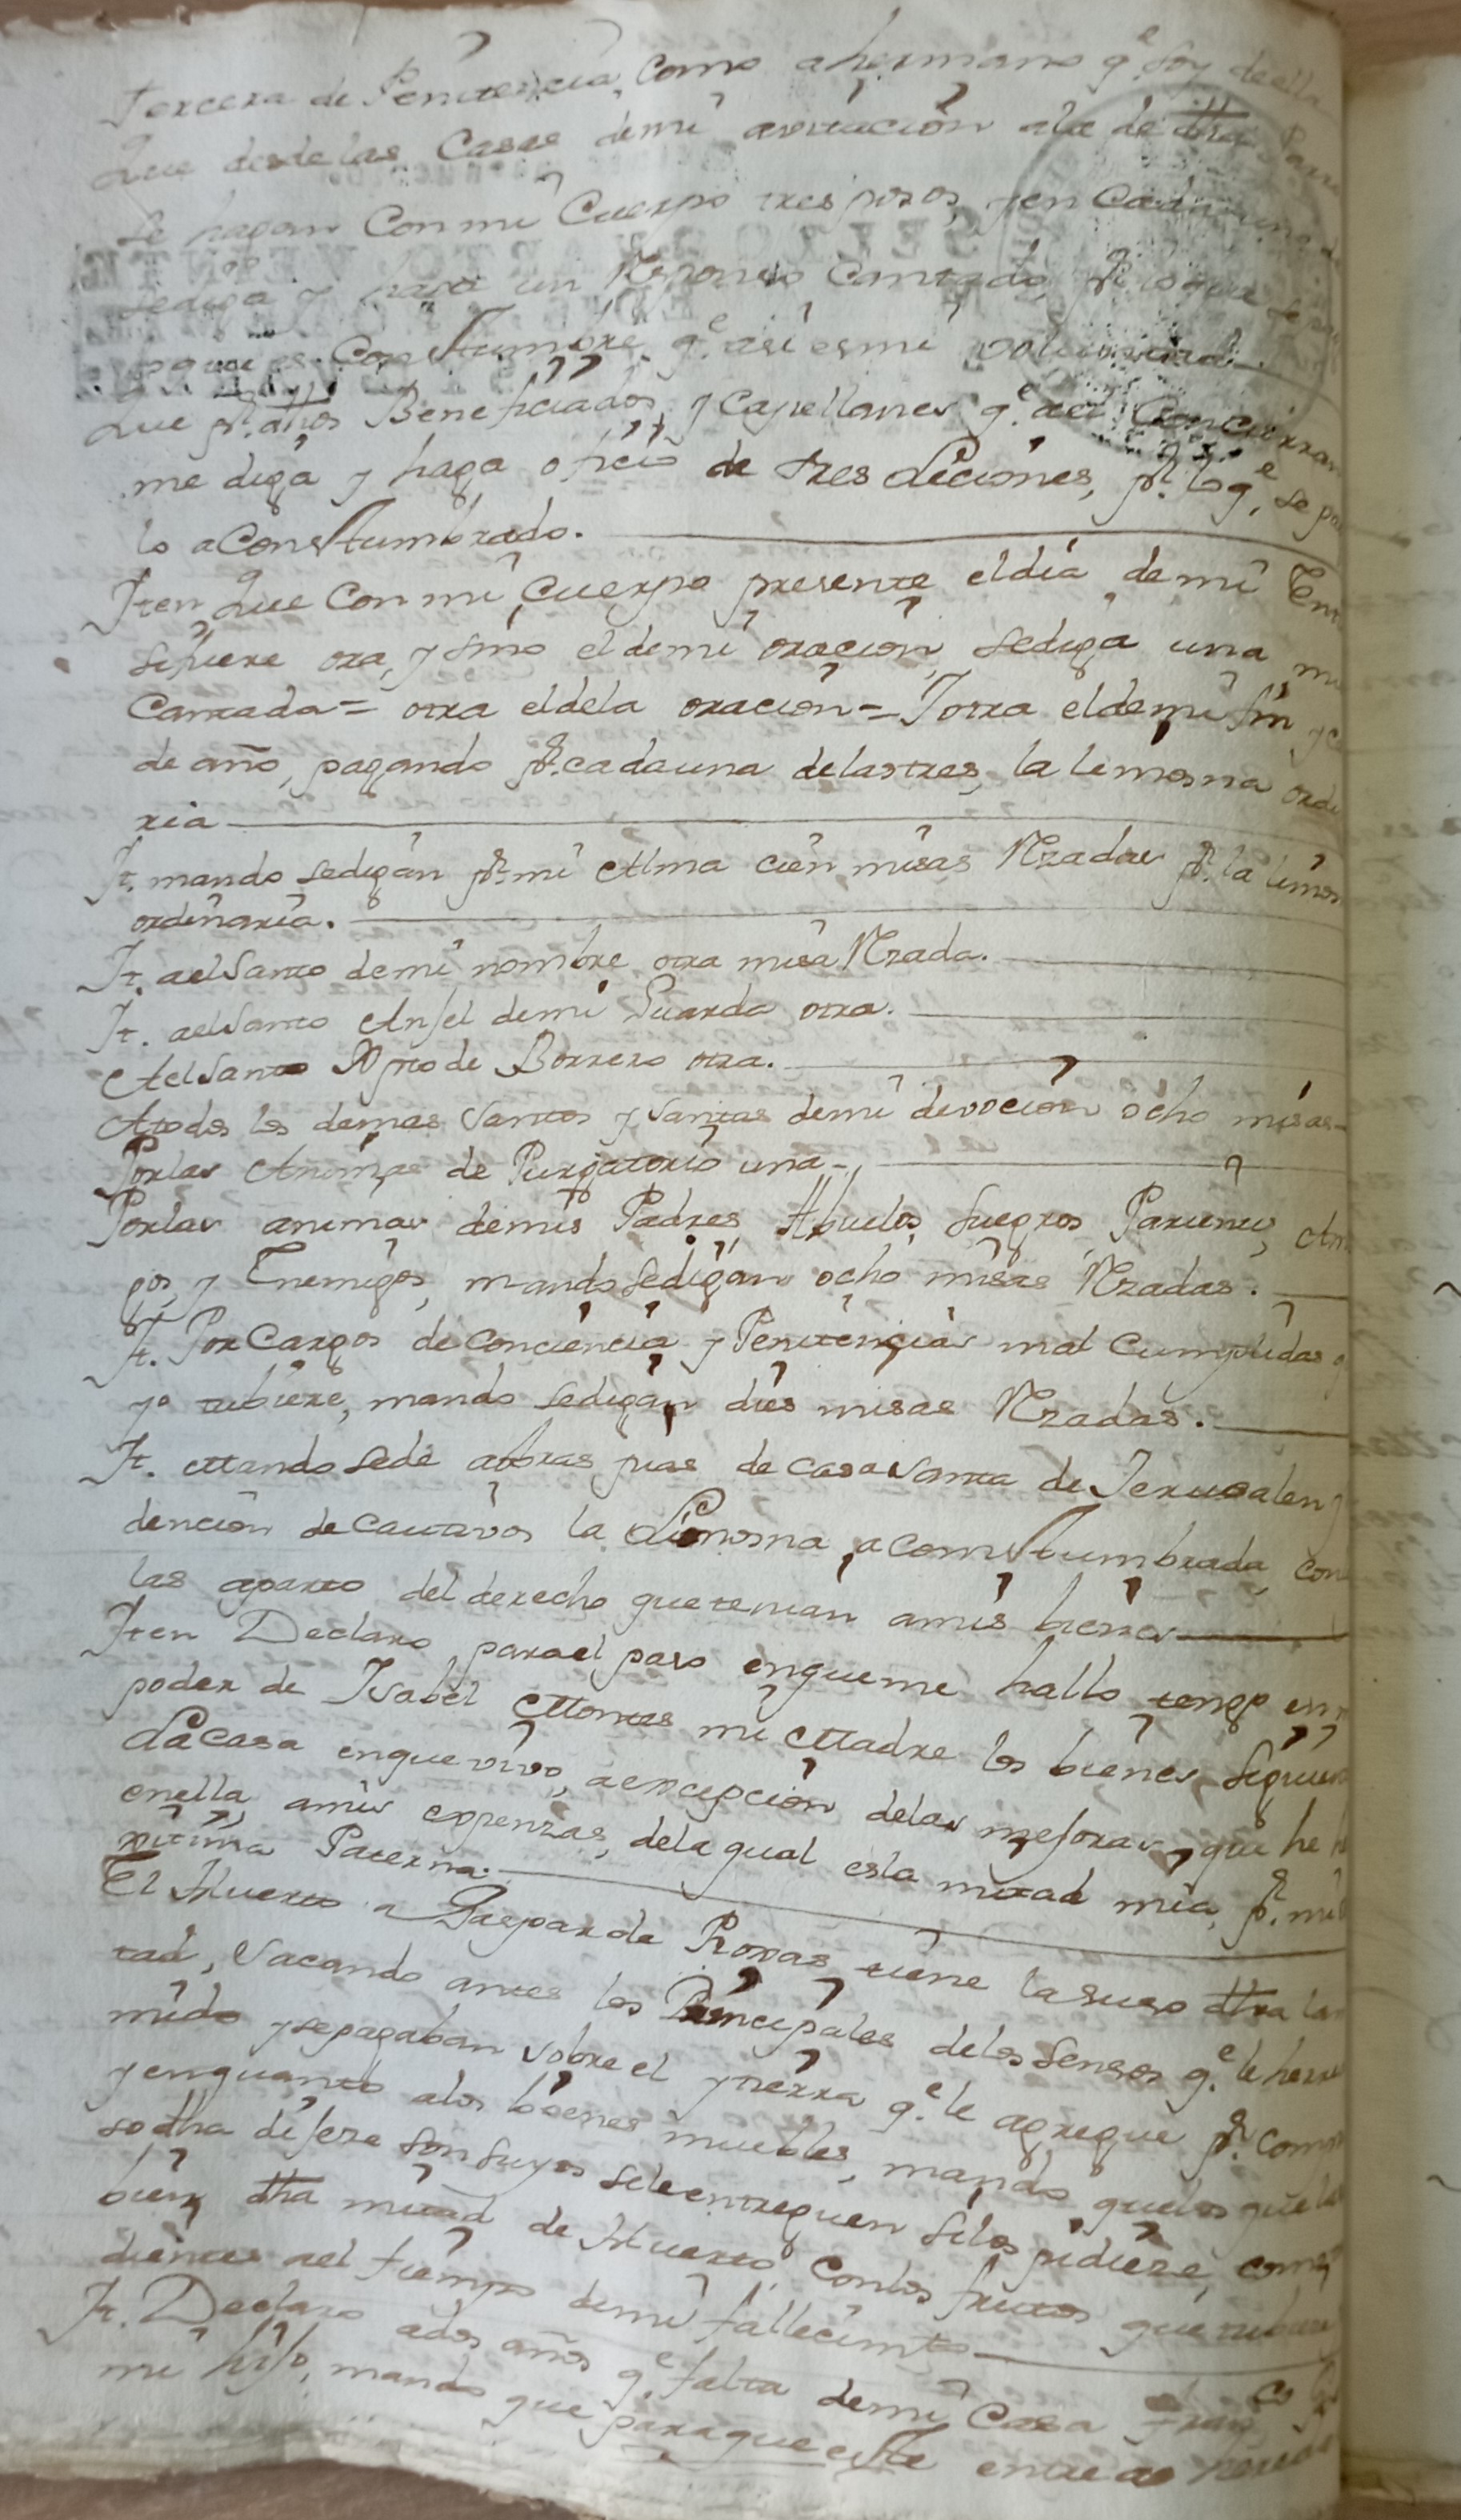 tercera de Penitencia, como a hermano q.e soy de ella
Que desde las Casas de mi avitacion a la de dha Parro
se hagan Con mi Cuerpo tres posos, y en Cada uno
se diga y haga un Responso Cantado, pr. lo que se
que es Constumbre q.e asi es mi voluntad
Que pr. dhos Beneficiados, y Capellanes q.e aei Concurran
me diga y haga oficio de tres Liciones, pr. lo q.e se pa
lo aConstumbrado.
Iten Que Con mi Cuerpo presente el dia de mi Ent
si fuere ora, y sino el de mi oracion, se diga una mi
Cantada = otra el dela oracion = Y otra el de mi fin y c
de año, pagando pr. cada una delas tres, la lemosna ordi
ria
It. mando se digan pr. mi Alma cien misas Rzadas pr. la limos
ordinaria.
It. ael Santo de mi nombre otra misa Rzada.
It. ael Santo Anjel de mi Guarda otra.
Ael Santo Xpto de Borrero otra.
Atodos los demas Santos y Santas de mi devocion ocho misas
Por las Animas de Purgatorio una
Por las animas de mis Padres, Abuelos, Suegros, Parientes, Am
gos, y Enemigos, mando se digan ocho misas Rzadas.
It. Por Cargos de Conciencia y Penitencias mal Cumplidas q
yo tubiere, mando se digan dies misas Rzadas.
It. Mando se dé aobras pias de Casa Santa de Jerusalen y
dencion de Cautivos la Limosna aConstumbrada, con
las aparto del derecho que tenian amis bienes
Iten Declaro para el paso en que me hallo tengo en
poder de Isabel Montes mi Madre los bienes siguien
La Casa en que vivo, a excepcion delas mejoras, que he h
en ella amis expenzas, dela qual es la mitad mia, pr. mi
xitima Paterna.
El Huerto a Gaspar de Roxas tiene la suso dha la m
tad, Sacando antes los Principales delos Sensos q.e le he re
mido y se pagaban sobre el y tierra q.e le agregue pr. Comp
y en quanto alos bienes muebles, mando que los que la
so dha dijere son suyos se le entreguen si los pidiere, com
bien dha mitad de Huerto Con los frutos que tubiere
dientes ael tiempo de mi fallecimto
It. Declaro ados años q.e falta de mi Casa Franco
mi hijo, mando que para que este entre a